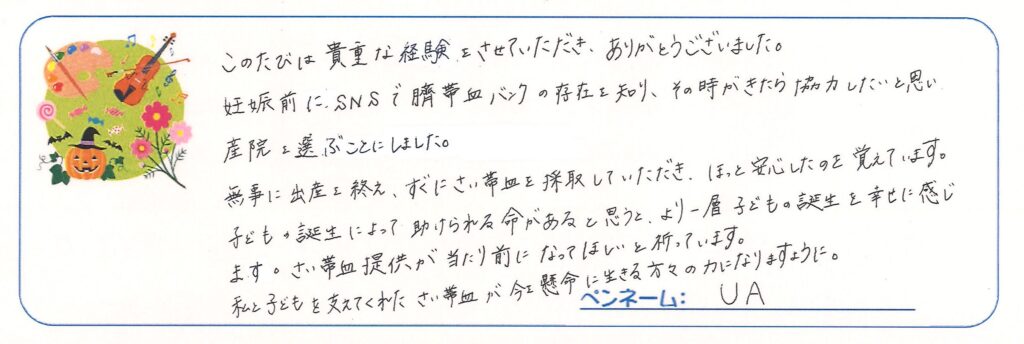 このたびは貴重な経験をさせていただき、ありがとうございました。
妊娠前にSNSで臍帯血バンクの存在を知り、その時がきたら協力したいと思い
産院を選ぶことにしました。
無事に出産を終え、すぐにさい帯血を採取していただき、ほっと安心したのを覚えています。
子どもの誕生によって助けられる命があると思うと、より一層子どもの誕生を幸せに感じ
ます。さい帯血提供が当たり前になってほしいと祈っています。
私と子どもを支えてくれたさい帯血が今を懸命に生きる方々の力になりますように。
ペンネーム： UA